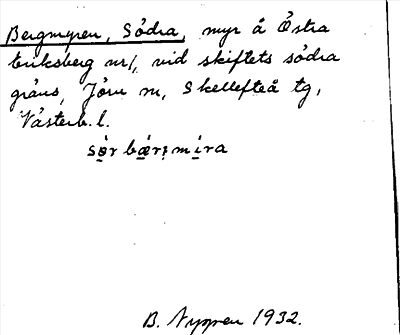 Bergmyren, Södra, myr å Östra
Eriksberg nr 1, vid skiftets södra
gräns, Jörn sn, Skellefteå tg,
Västerb. l.
B. Nyppen 1932.